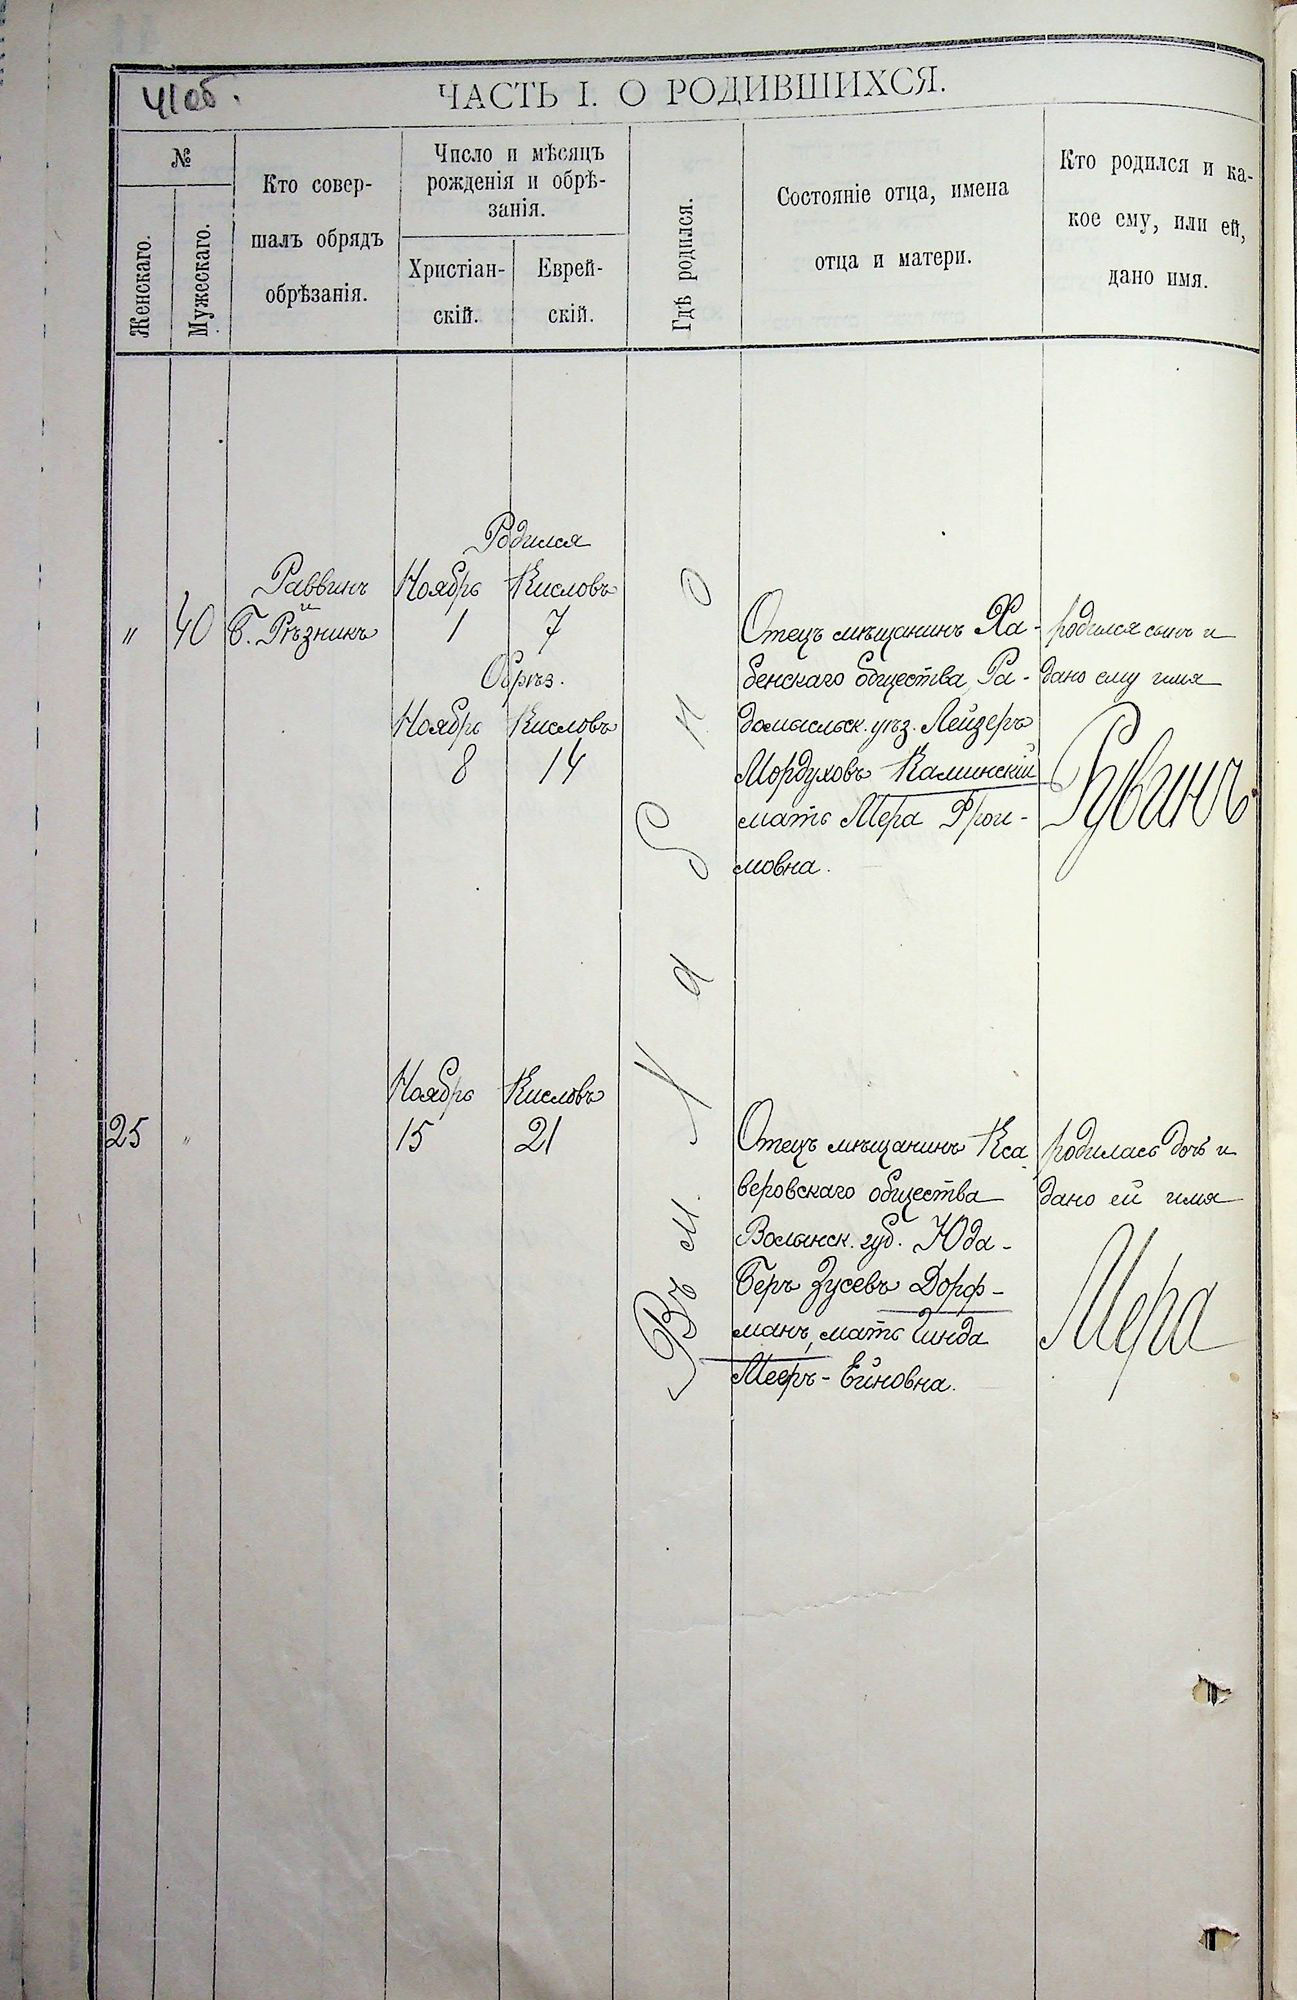 41об.
ЧАСТЬ I. О РОДИВШИХСЯ.
№
Женскаго.
Мужескаго.
Кто совер-
шалъ обрядъ
обрѣзанія.
Число и мѣсяцъ
рожденія и обрѣ-
занія.
Христіан-
скій.
Еврей-
скій.
Гдѣ родился.
Состояніе отца, имена
отца и матери.
Кто родился и ка-
кое ему, или ей,
дано имя.
Родился
Раввинъ Ноябрь Кисловъ
и
" 40 Б. Рѣзникъ 1 7
Обрѣз.
Ноябрь Кисловъ
8 14
Отецъ мѣщанинъ Ха-
бенскаго общества, Ра-
домысльск. уѣз. Лейзеръ
Мордуховъ Калинскій
мать Мера Фрои-
мовна.
родился сынъ и
дано ему имя
Рувинъ
Въ м. Хабно
Ноябрь Кисловъ
25 " 15 21
Отецъ мѣщанинъ Кса
веровскаго общества
Волынск. губ. Юда-
Беръ Зусевъ Дорф-
манъ, мать Гинда
Мееръ-Ейновна.
родилась дочь и
дано ей имя
Мера